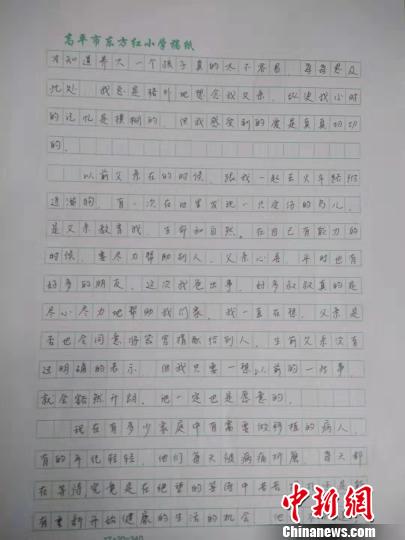 高平市东方红小学稿纸
才知道养大一个孩子真的太不容易，每每思及
此处，我总是格外地想念我父亲，纵使我小时
的记忆是模糊的，但我感受到的爱是真真切切
的。
以前父亲在的时候，跟我一起去火车站附
近遛狗，有一次在田里发现一只受伤的鸟儿，
是父亲教育我，生命和自然，在自己有能力的
时候，要尽力帮助别人，父亲心善，平时也有
好多的朋友，这次我爸出事，好多叔叔真的是
尽心尽力地帮助我们家，我一直在想，父亲是
否也会同意将器官捐献给别人，生前父亲没有
过明确的表示，但我只要一想以前的一些事，
就会豁然开朗，他一定也是愿意的。
现在有多少家庭中有需要做移植的病人，
有的年纪轻轻，他们每天被病痛折磨，每天都
在等待究竟是在绝望的等待中苦苦
有重新开始健康的生活的机会，他
中新网